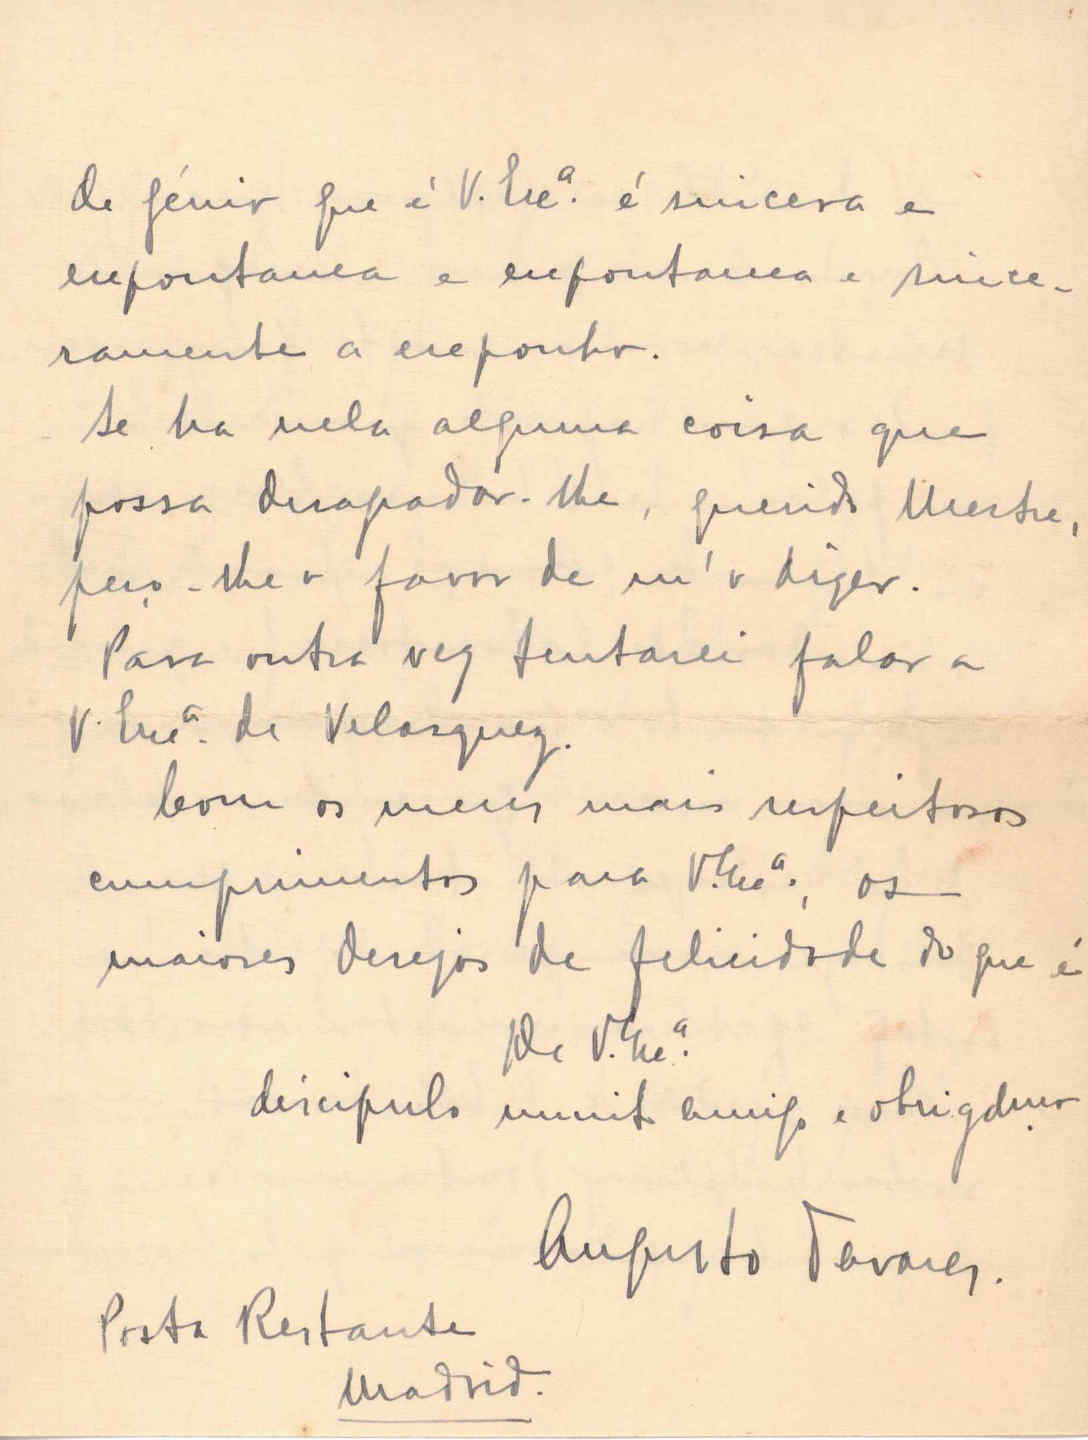 de génio que é V. Exª. é sincera e
espontanea e espontanea e since-
ramente a exponho.
Se ha nela alguma coisa que
possa desagradar-lhe, querido Mestre,
peço-lhe o favor de m'o dizer.
Para outra vez tentarei falar a
V. Exª. de Velasquez.
Com os meus mais respeitosos
cumprimentos para V. Exª., os
maiores desejos de felicidade do que é
De V. Exª.
discipulo muito amigo e obrigdmo
Augusto Tavares.
Posta Restante
Madrid.